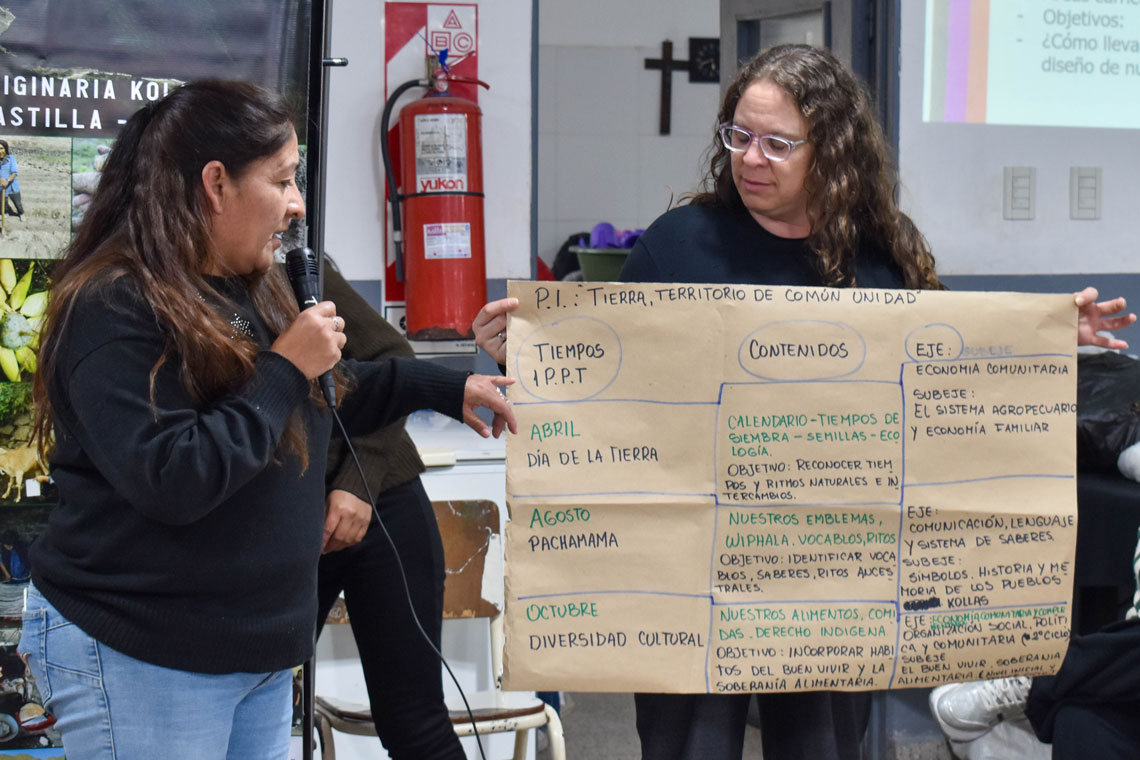 IGINARIA KOL
ASTILLA -
A
B C
yukon
- Objetivos:
- ¿Cómo lleva
diseño de nu
P.I.: "TIERRA, TERRITORIO DE COMÚN UNIDAD"
TIEMPOS
1 P.P.T
CONTENIDOS
EJE: SUBEJE
ABRIL
DÍA DE LA TIERRA
CALENDARIO-TIEMPOS DE
SIEMBRA-SEMILLAS-ECO
LOGÍA.
OBJETIVO: RECONOCER TIEM
POS Y RITMOS NATURALES E IN
TERCAMBIOS.
ECONOMÍA COMUNITARIA
SUBEJE:
EL SISTEMA AGROPECUARIO
Y ECONOMÍA FAMILIAR
AGOSTO
PACHAMAMA
NUESTROS EMBLEMAS,
WIPHALA. VOCABLOS, RITOS
OBJETIVO: IDENTIFICAR VOCA
BLOS, SABERES, RITOS ANCES
TRALES.
EJE:
COMUNICACIÓN, LENGUAJE
Y SISTEMA DE SABERES
SUBEJE:
SÍMBOLOS. HISTORIA Y ME
MORIA DE LOS PUEBLOS
KOLLAS
OCTUBRE
DIVERSIDAD CULTURAL
NUESTROS ALIMENTOS, COMI
DAS. DERECHO INDIGENA
OBJETIVO: INCORPORAR HABI
TOS DEL BUEN VIVIR Y LA
SOBERANÍA ALIMENTARIA.
EJE: ECONOMIA COMUNITARIA Y COMPLE
ORGANIZACIÓN SOCIAL, POLÍTI
CA Y COMUNITARIA (2º CICLO)
SUBEJE
EL BUEN VIVIR. SOBERANIA
ALIMENTARIA. (NIVEL INICIAL Y